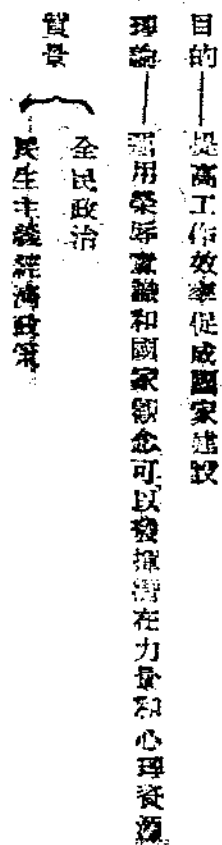 目的——提高工作效率促成國家建設
理論——運用榮辱意識和國家觀念可以發揮潛在力量和心理資源
背景
全民政治
民生主義經濟政策